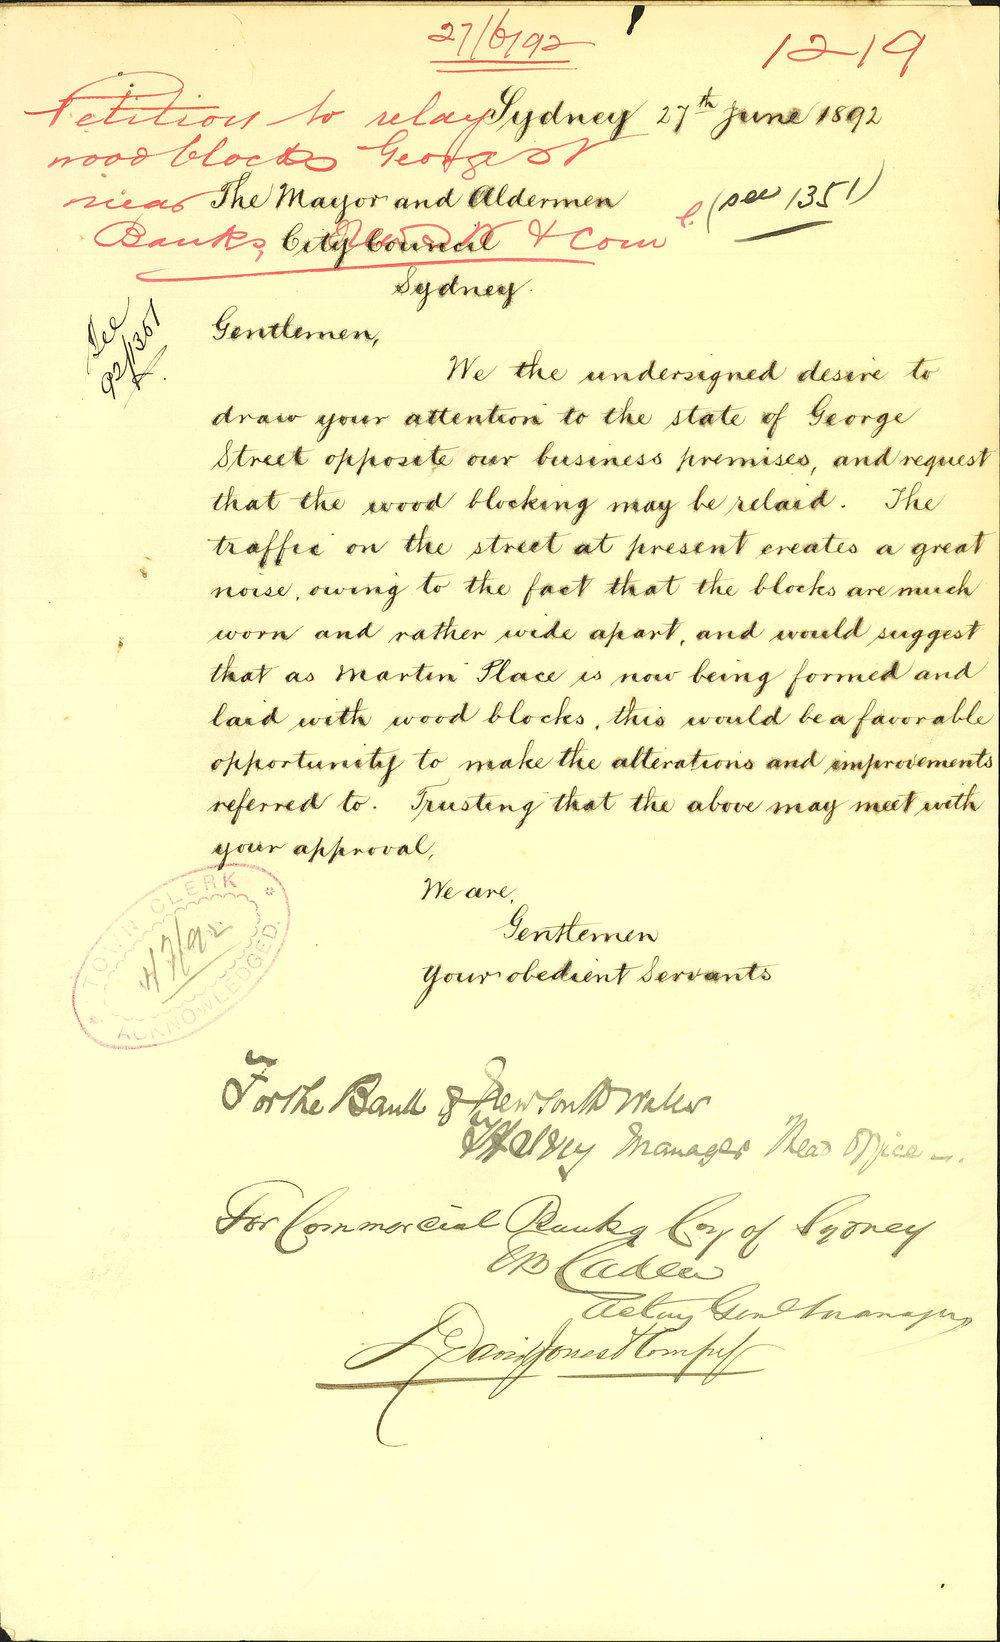 27/6/92
1219
Petition to relay
wood blocks George St
near
Banks, & Com l.
Sydney 27th June 1892
(see 1351)
The Mayor and Aldermen
City Council
Sydney.
See
92/1351
Gentlemen,
We the undersigned desire to
draw your attention to the state of George
Street opposite our business premises, and request
that the wood blocking may be relaid. The
traffic on the street at present creates a great
noise, owing to the fact that the blocks are much
worn and rather wide apart, and would suggest
that as Martin Place is now being formed and
laid with wood blocks, this would be a favorable
opportunity to make the alterations and improvements
referred to. Trusting that the above may meet with
your approval,
We are,
Gentlemen
Your obedient Servants
TOWN CLERK
4/7/92
ACKNOWLEDGED.
For the Bank of New South Wales
Manager Head Office
For Commercial Banking Coy of Sydney
Acting Genl Manager
David Jones & Compy